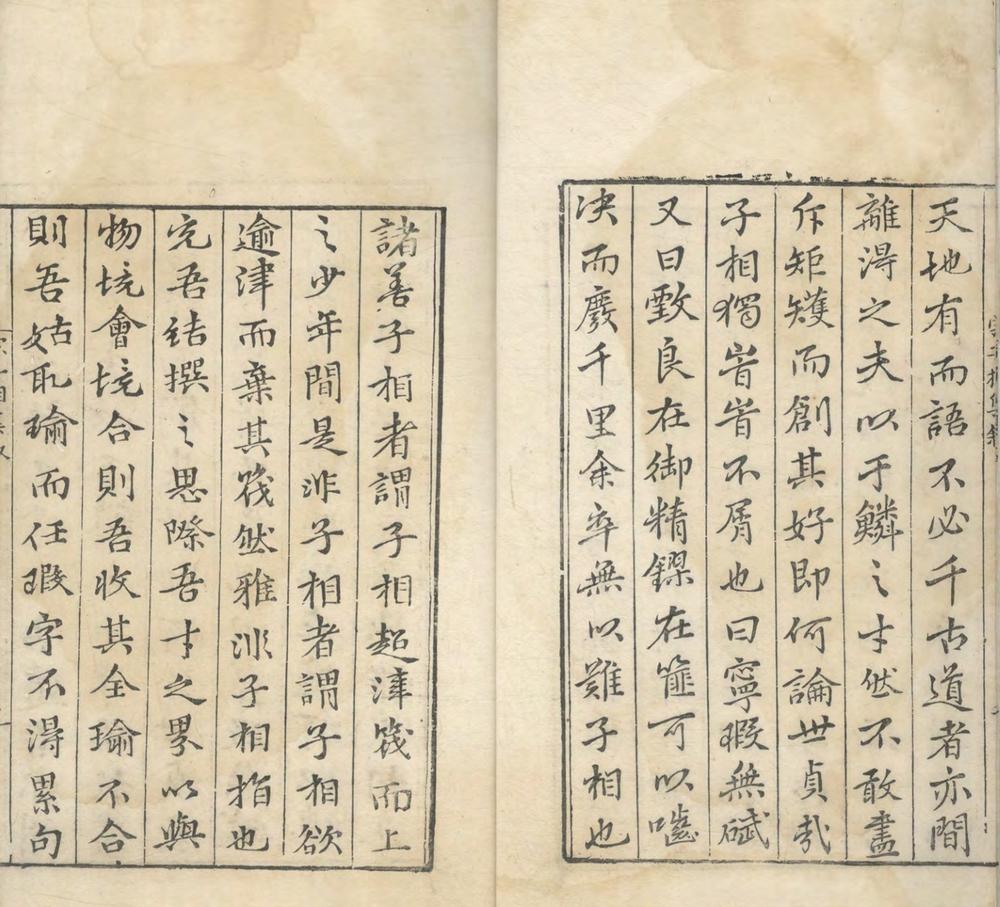 天地有而語不必千古道者亦間
離淂之夫以于鱗之才然不敢盡
斥矩矱而創其好即何論世貞哉
子相獨訾訾不屑也曰寧瑕無碔
又曰致良在御精鏐在篚可以嚙
决而廢千里余卒無以難子相也
諸善子相者謂子相超津筏而上
之少年間是非子相者謂子相欲
逾津而棄其筏然雅非子相指也
充吾結撰之思際吾才之界以與
物境會境合則吾收其全瑜不合
則吾姑取瑜而任瑕字不淂累句